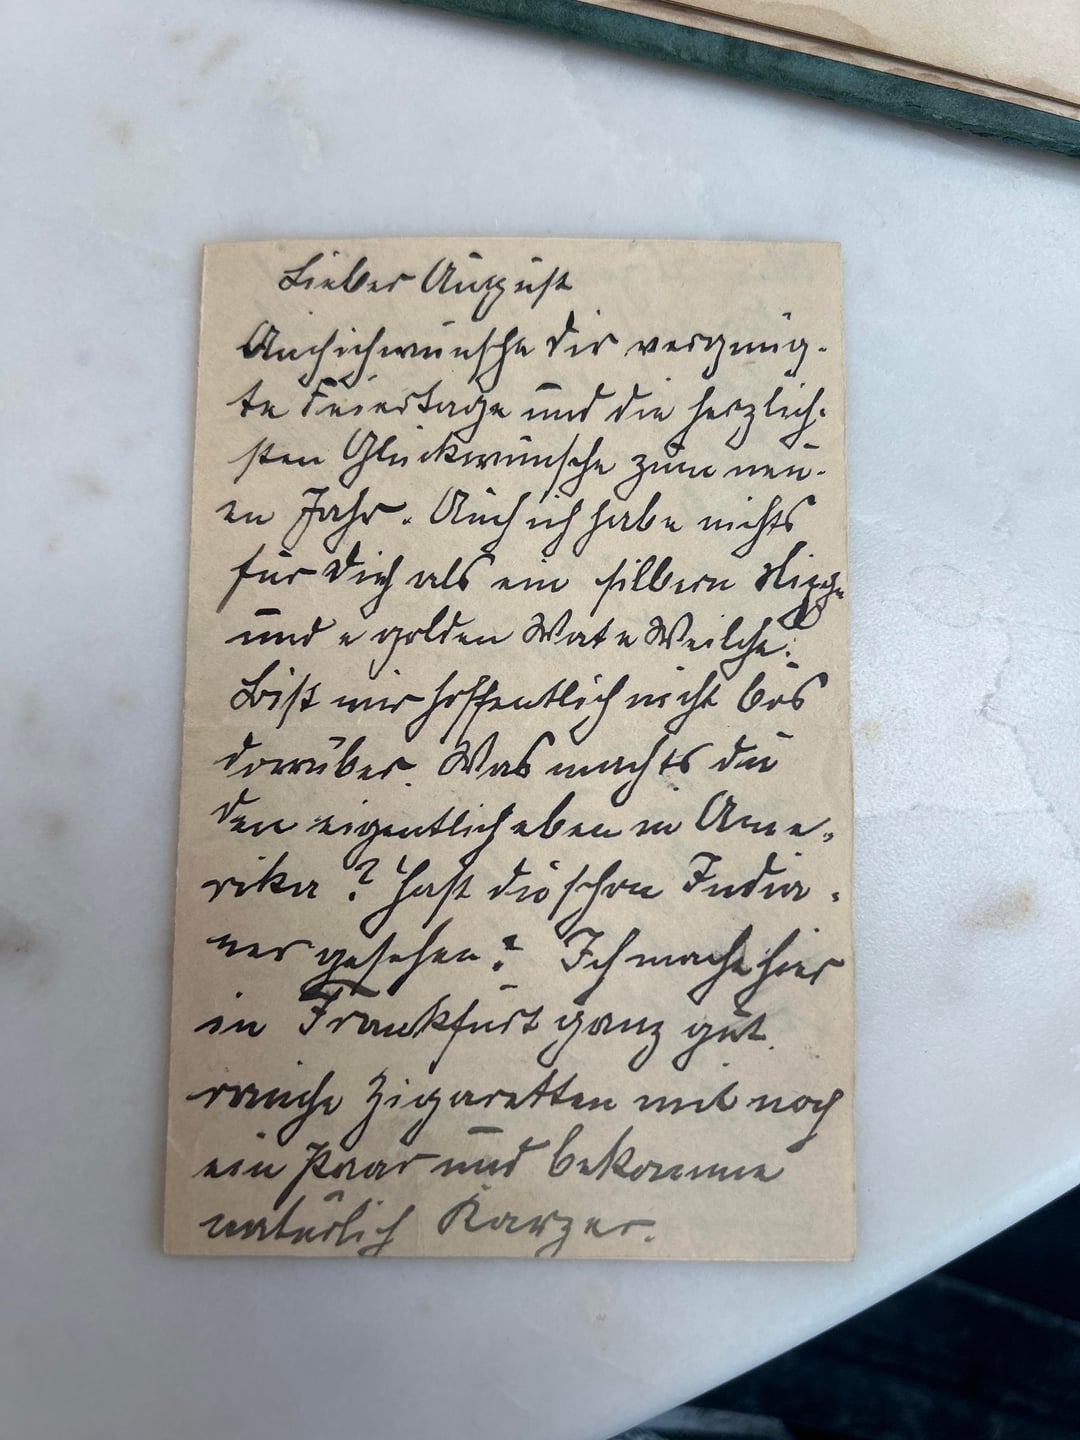 Lieber August
Auch ich wünsche Dir vergnüg-
te Feiertage und die herzlich-
sten Glückwünsche zum neu-
en Jahr. Auch ich habe nichts
für Dich als ein silbern Nixche
und e golden Wart e Weilche.
Bist mir hoffentlich nicht bös
darüber. Was machts du
den eigentlich eben in Ame-
rika? Hast du schon India-
ner gesehen? Ich mache hier
in Frankfurt ganz gut.
rauche Zigaretten mit noch
ein Paar und bekomme
natürlich Karzer.